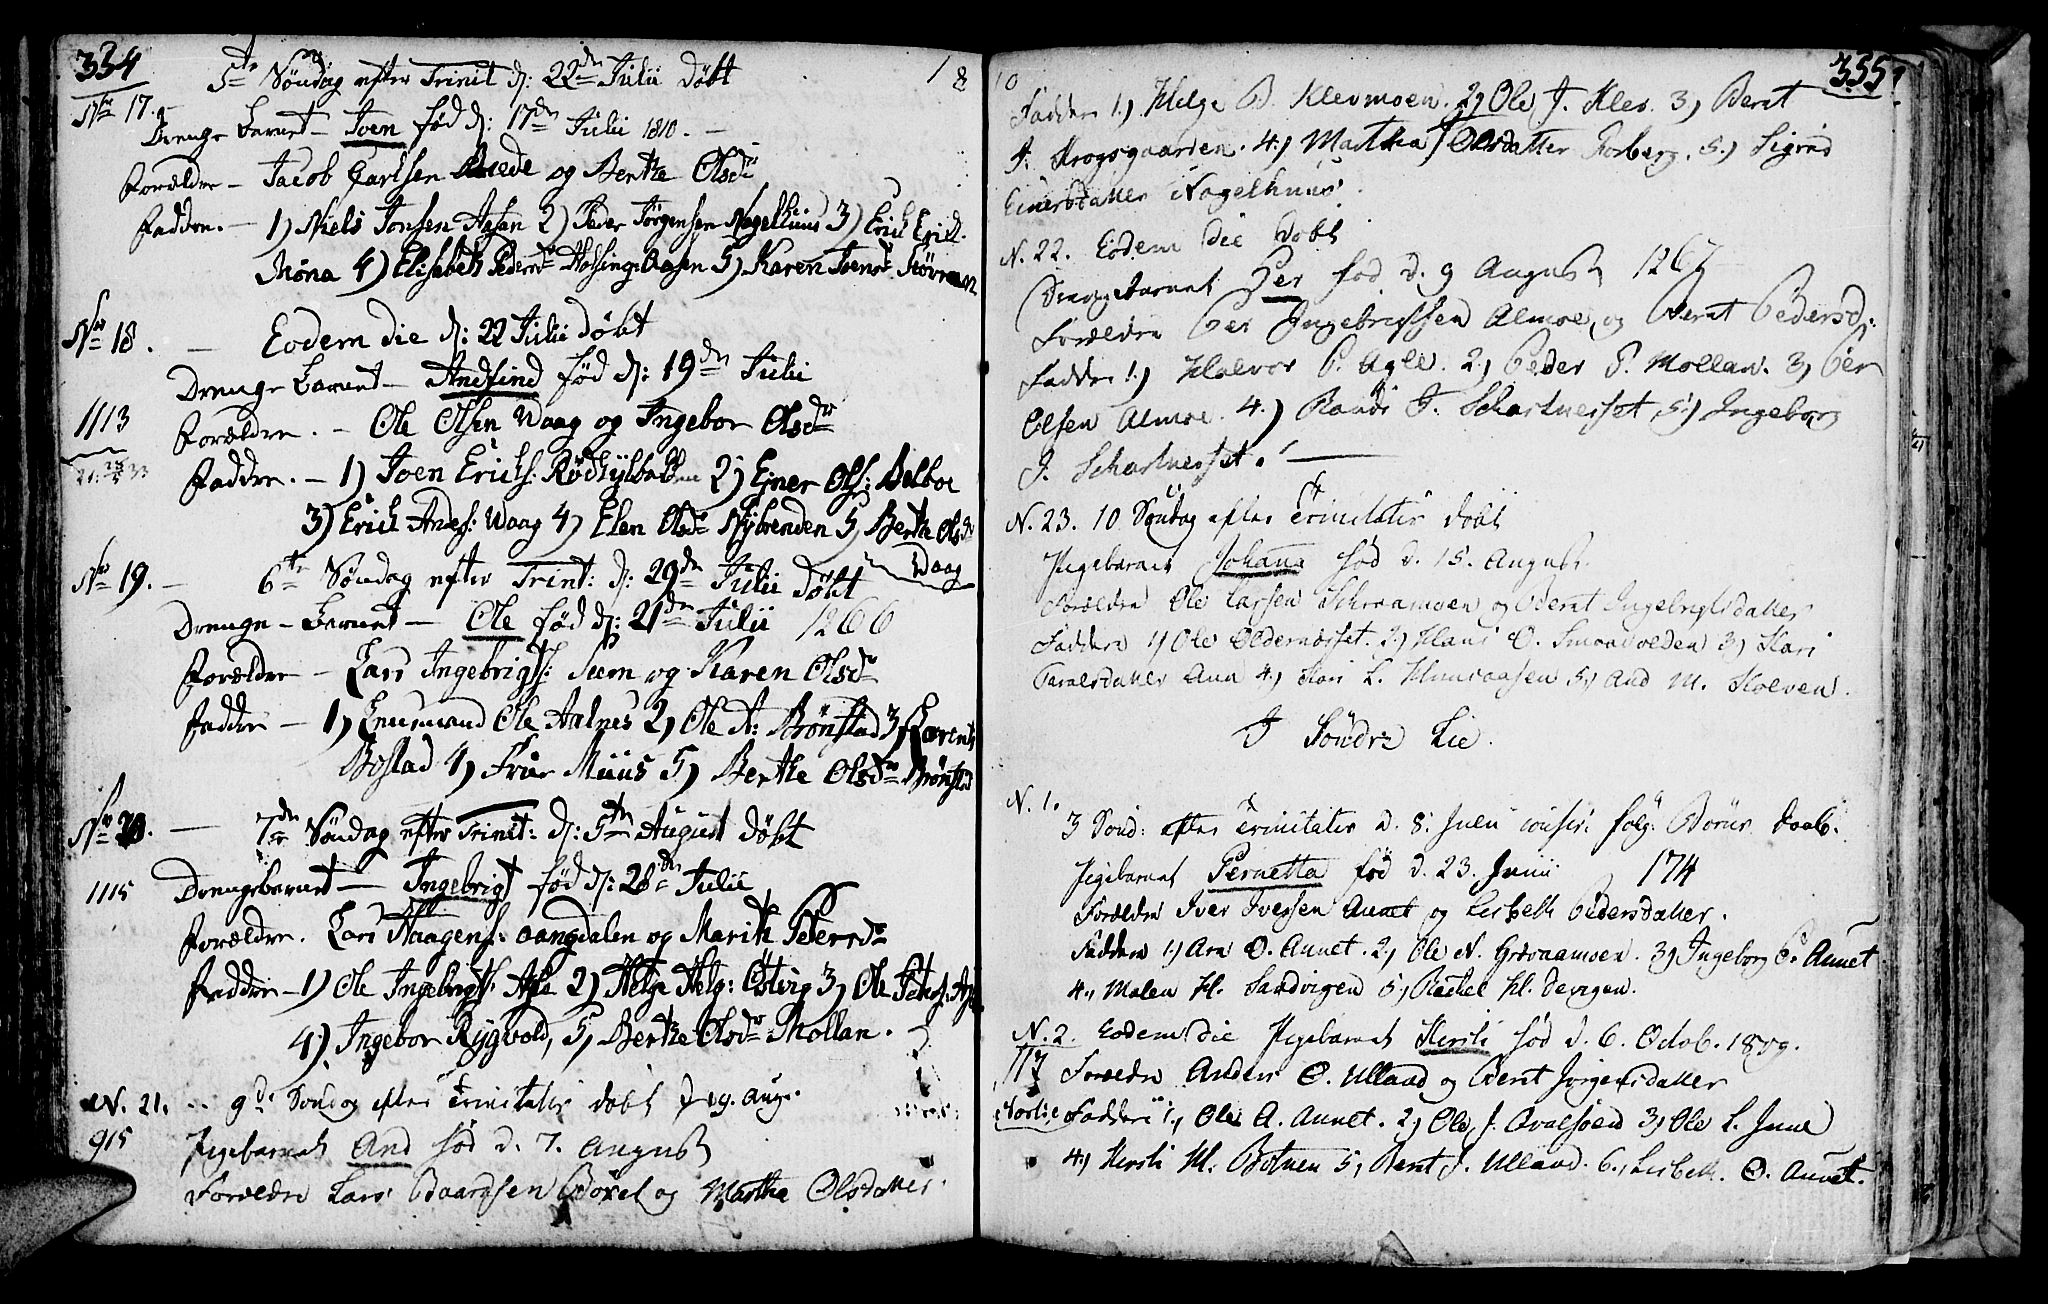 334
18
5te Søndag efter Trinit d: 22de Julii døbt
No 17.
Drenge Barnet - Joen fød d: 17de Julii 1810. -
Forældre - Jacob Carlsen og Berthe Olsdr
Faddre. - 1) Niels Jonsen Aasen 2) Peder Jørgensen Nagelhuus 3) Erich Erich.
Mona 4) Elisabeth Pedersdr Aasen 5) Karen Joensdr
No 18. - Eodem die d: 22 Julii døbt
Drenge Barnet - Andfind fød d: 19de Julii
1113
Forældre. - Ole Olsen Waag og Ingebor Olsdr
Faddre. - 1) Joen Erichs: 2) Ejner Ols: Belboe
3) Erich Anders: Waag 4) Elen Olsdr Nybrenden 5) Berthe Olsdr
Waag
No 19. - 6te Søndag efter Trint: d: 29de Julii døbt
Drenge - Barnet - Ole fød d: 21de Julii 1266
Forældre - Lars Ingebrigts: Sem og Karen Olsdr
Faddre - 1) Lensmand Ole Aalnes 2) Ole A: Brønstad 3)
Bostad 4) Frue Muus 5) Berthe Olsdr Brønstad
No 20. - 7de Søndag efter Trinit: d: 5te August døbt
1115
Drengebarnet - Ingebrigt fød d: 28de Julii
Forældre. Lars Haagens: Aangdalen og Marith Pedersdr
Faddre - 1) Ole Ingebrigts: Agle 2) Helge Helg: Østvig 3) Ole Peders: Agle
4) Ingebor Rygvold, 5) Berthe Olsdr Mollan.
N. 21. 9de Sondag efter Trinitatis dobt 19. Aug.
915
Pigebarnet And fød d. 7. August
Forældre Lars Baardsen og Martha Olsdatter.
10
355
Faddre 1.) Helge B. Klevmoen. 2) Ole J. Klev. 3) Berat
J. Krogsgaarden. 4) Martha Olsdatter Forberg. 5.) Sigrid
Einersdatter Nagelhuus.
N. 22. Eodem die dobt
Drengebarnet Per fød d. 9 August 1267
Forældre Per Ingebrigtsen Almoe, og Berat Pedersd:
Faddre 1.) Halvor P. Agle. 2.) Peder P. Mollan. 3) Per
Olsen Almoe. 4.) Randi J. Schartnesset 5.) Ingeborg
J. Schartnesset.
N. 23. 10 Søndag efter Trinitatis dobt
Pigebarnet Johanna fød d. 15. August.
Forældre Ole Larsen og Berat Ingebrigtsdatter
Faddere 1) Ole Oldernesset. 2.) Hans O. 3) Kari
4.) Kari L. 5.) And M. Kolven.
I Søndre Lie.
N. 1.
3 Sond: efter Trinitatis d. 8. Juli Børns Daab.
Pigebarnet Pernetta fød d. 23. Junii 174
Forældre Iver Iversen Aunet og Lisbeth Pedersdatter.
Faddere 1.) Arn O. Aunet. 2.) Ole N. 3) Ingeborg P. Aunet
4., Malen H. Sandvigen 5.) Rachel H. Devigen.
N. 2. Eodem die Pigebarnet Kersti fød d. 6. Octob. 1809.
117
Forældre Anders O. Ulland og Berat Jörgensdatter
Nordlie Faddere 1., Ole A. Aunet. 2.) Ole J. 3) Ole L. June
4.) Kersti M. Botnen 5.) Berat J. Ulland. 6., Lisbeth O. Aunet.